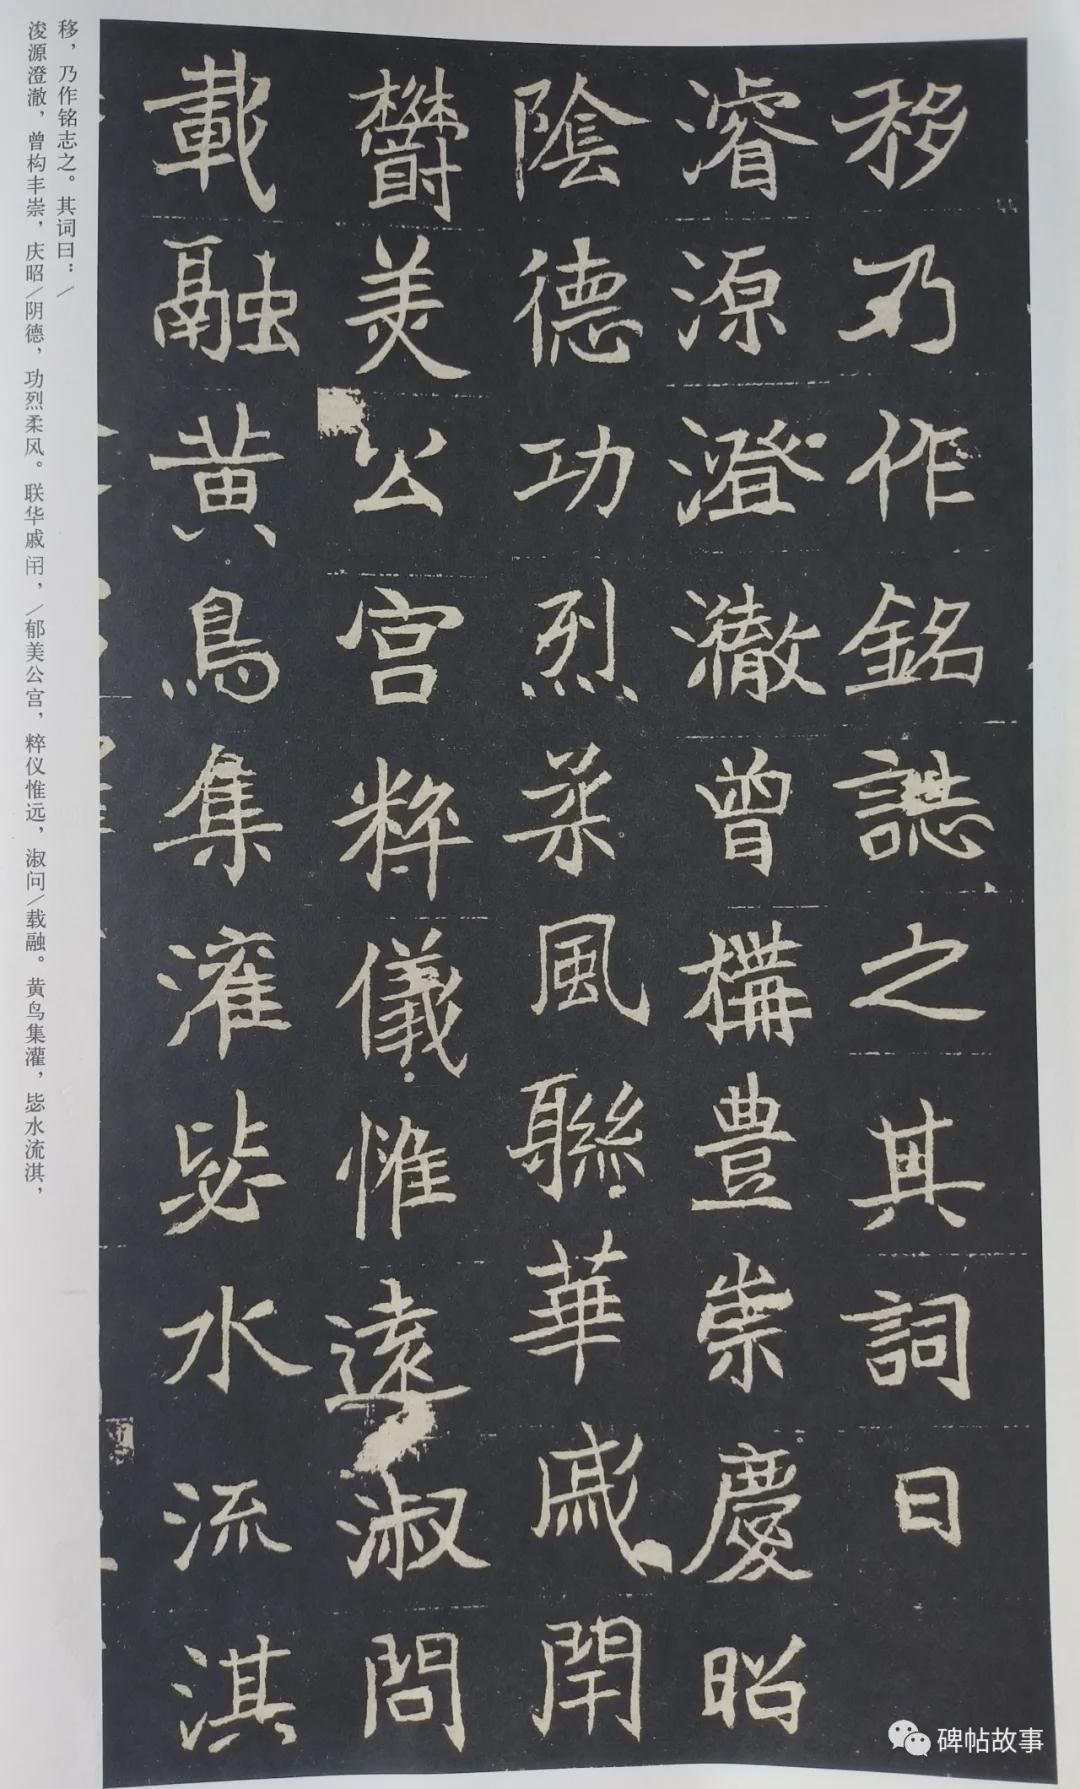 移乃作銘誌之其詞曰
濬源澄澈曾構豊崇慶昭
陰德功烈柔風聯華戚閈
欝美公宮粹儀惟遠淑問
載融黄鳥集灌毖水流淇
移，乃作铭志之。其词曰：／
浚源澄澈，曾构丰崇，庆昭／阴德，功烈柔风。联华戚闬，／郁美公宫，粹仪惟远，淑问／载融。黄鸟集灌，毖水流淇，
碑帖故事